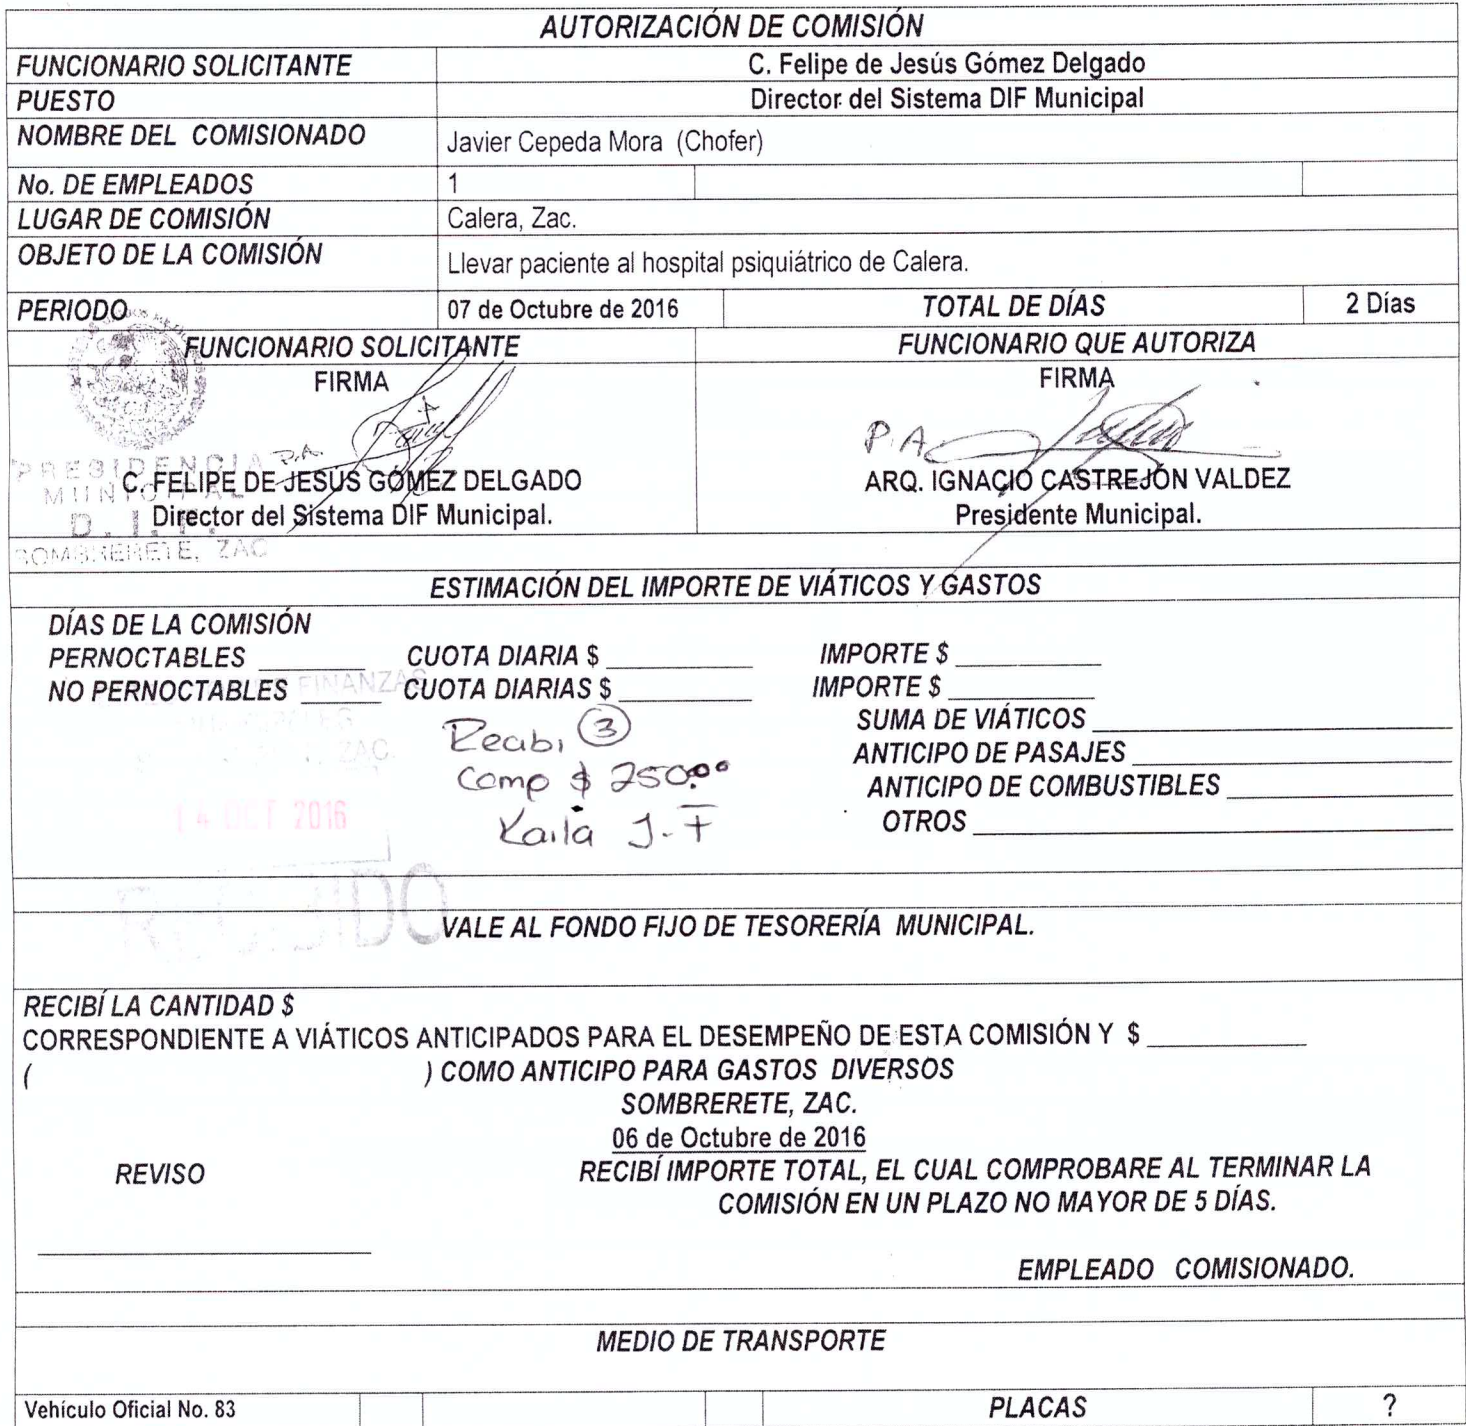 AUTORIZACIÓN DE COMISIÓN
FUNCIONARIO SOLICITANTE C. Felipe de Jesús Gómez Delgado
PUESTO Director del Sistema DIF Municipal
NOMBRE DEL COMISIONADO Javier Cepeda Mora (Chofer)
No. DE EMPLEADOS 1
LUGAR DE COMISIÓN Calera, Zac.
OBJETO DE LA COMISIÓN Llevar paciente al hospital psiquiátrico de Calera.
PERIODO 07 de Octubre de 2016 TOTAL DE DÍAS 2 Días
FUNCIONARIO SOLICITANTE FUNCIONARIO QUE AUTORIZA
FIRMA FIRMA
P.A. P.A
PRESIDENCIA
MUNICIPAL
D.I.F.
SOMBRERETE, ZAC
C. FELIPE DE JESÚS GÓMEZ DELGADO ARQ. IGNACIO CASTREJÓN VALDEZ
Director del Sistema DIF Municipal. Presidente Municipal.
ESTIMACIÓN DEL IMPORTE DE VIÁTICOS Y GASTOS
DÍAS DE LA COMISIÓN
PERNOCTABLES CUOTA DIARIA $ IMPORTE $
NO PERNOCTABLES CUOTA DIARIAS $ IMPORTE $
FINANZAS
ZAC.
OCT 2016
RECIBIDO
Recibi 3
Comp $ 250.00
Karla J. F
SUMA DE VIÁTICOS
ANTICIPO DE PASAJES
ANTICIPO DE COMBUSTIBLES
OTROS
VALE AL FONDO FIJO DE TESORERÍA MUNICIPAL.
RECIBÍ LA CANTIDAD $
CORRESPONDIENTE A VIÁTICOS ANTICIPADOS PARA EL DESEMPEÑO DE ESTA COMISIÓN Y $
( ) COMO ANTICIPO PARA GASTOS DIVERSOS
SOMBRERETE, ZAC.
06 de Octubre de 2016
REVISO RECIBÍ IMPORTE TOTAL, EL CUAL COMPROBARE AL TERMINAR LA
COMISIÓN EN UN PLAZO NO MAYOR DE 5 DÍAS.
EMPLEADO COMISIONADO.
MEDIO DE TRANSPORTE
Vehículo Oficial No. 83 PLACAS ?